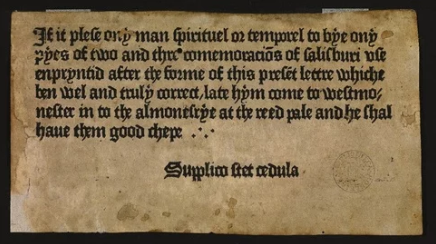 If it plese ony man spirituel or temporel to bye ony
pyes of two and thre comemoracios of salisburi vse
enpryntid after the forme of this preset lettre whiche
ben wel and truly correct, late hym come to westmo-
nester in to the almonesrye at the reed pale and he shal
haue them good chepe .·.
Supplico stet cedula